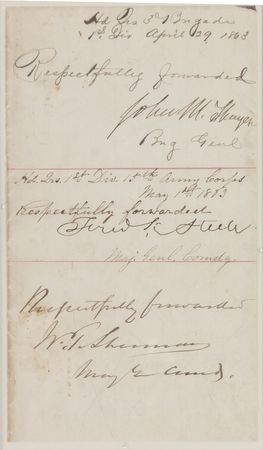 Hd Qrs 3d Brigade
1st Div April 29, 1863
Respectfully forwarded
John M. Thayer
Brig Genl
Hd. Qrs. 1st Div 15th Army Corps
May 1st 1863
Respectfully forwarded
Fred K Steele
Maj. Genl. Comdg.
Respectfully forwarded
W. T. Sherman
Maj Comd.